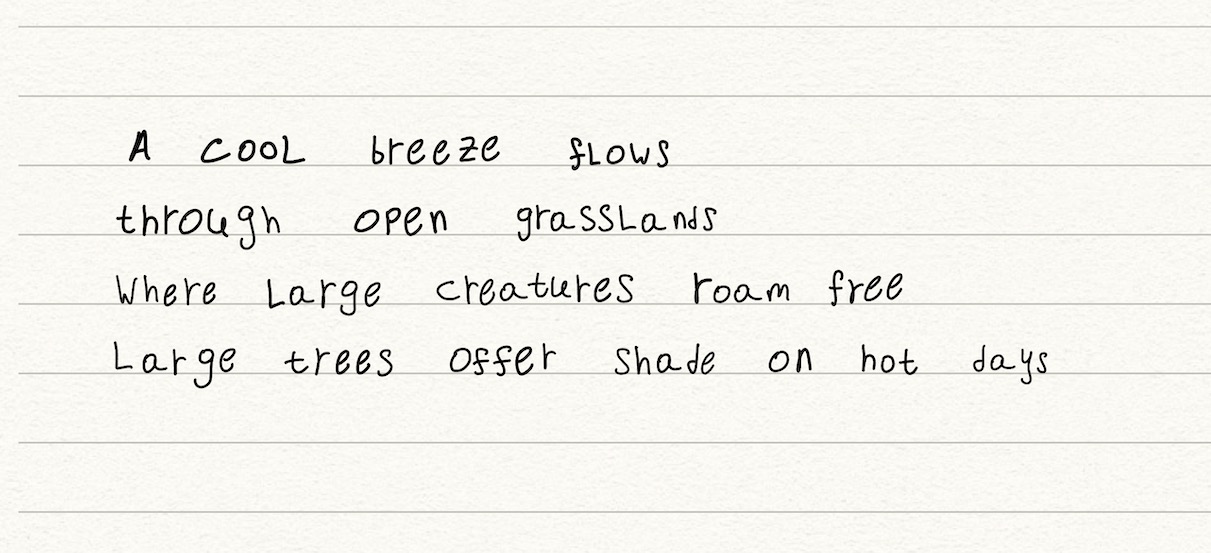 A cool breeze flows
through open grasslands
Where Large creatures roam free
Large trees offer shade on hot days